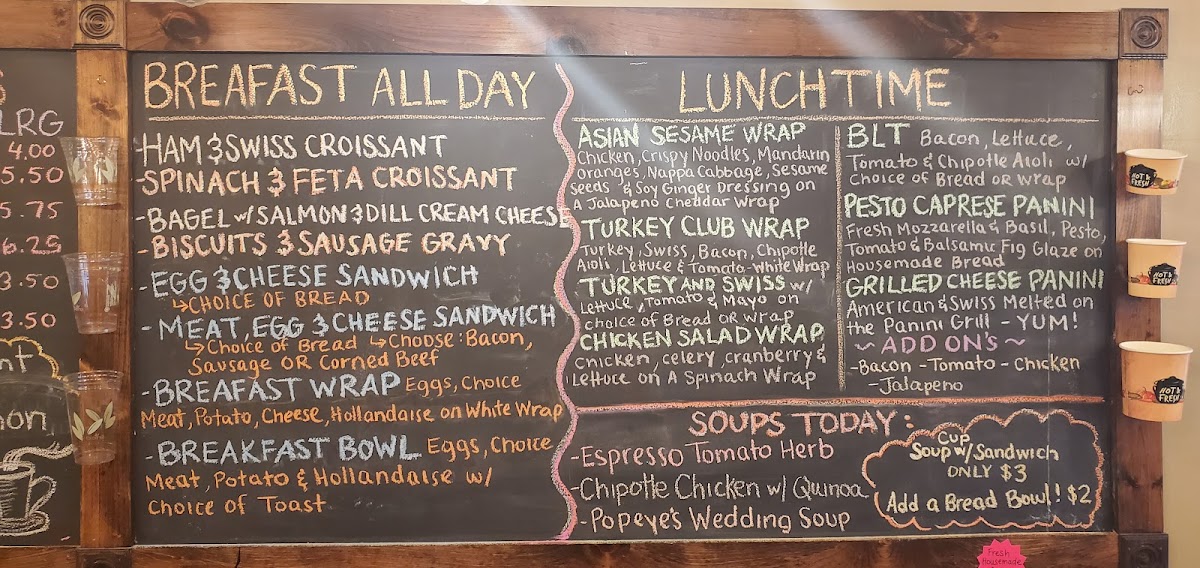 LRG
4.00
5.50
5.75
6.25
3.50
3.50
BREAFAST ALL DAY
-HAM & SWISS CROISSANT
-SPINACH & FETA CROISSANT
-BAGEL w/ SALMON & DILL CREAM CHEESE
-BISCUITS & SAUSAGE GRAVY
-EGG & CHEESE SANDWICH
↳CHOICE OF BREAD
-MEAT, EGG & CHEESE SANDWICH
↳Choice of Bread ↳Choose: Bacon,
Sausage OR Corned Beef
-BREAFAST WRAP Eggs, Choice
Meat, Potato, Cheese, Hollandaise on White Wrap
-BREAKFAST BOWL Eggs, Choice
Meat, Potato & Hollandaise w/
Choice of Toast
LUNCHTIME
ASIAN SESAME WRAP
Chicken, Crispy Noodles, Mandarin
oranges, Nappa Cabbage, Sesame
Seeds & Soy Ginger Dressing on
A Jalapeno Cheddar Wrap
TURKEY CLUB WRAP
Turkey, Swiss, Bacon, Chipotle
Aioli, Lettuce & Tomato-White Wrap
TURKEY AND SWISS w/
Lettuce, Tomato & Mayo on
choice of Bread OR Wrap
CHICKEN SALAD WRAP
Chicken, celery, cranberry &
Lettuce on A Spinach Wrap
BLT Bacon, Lettuce,
Tomato & Chipotle Aioli w/
Choice of Bread OR Wrap
PESTO CAPRESE PANINI
Fresh Mozzarella & Basil, Pesto,
Tomato & Balsamic Fig Glaze on
Housemade Bread
GRILLED CHEESE PANINI
American & Swiss Melted on
the Panini Grill - YUM!
~ ADD ON'S ~
-Bacon - Tomato - Chicken
-Jalapeno
SOUPS TODAY:
-Espresso Tomato Herb
-Chipotle Chicken w/ Quinoa
-Popeye's Wedding Soup
Cup
Soup w/ Sandwich
ONLY $3
Add a Bread Bowl! $2
HOT &
FRESH
HOT &
FRESH
HOT &
FRESH
Fresh
Housemade